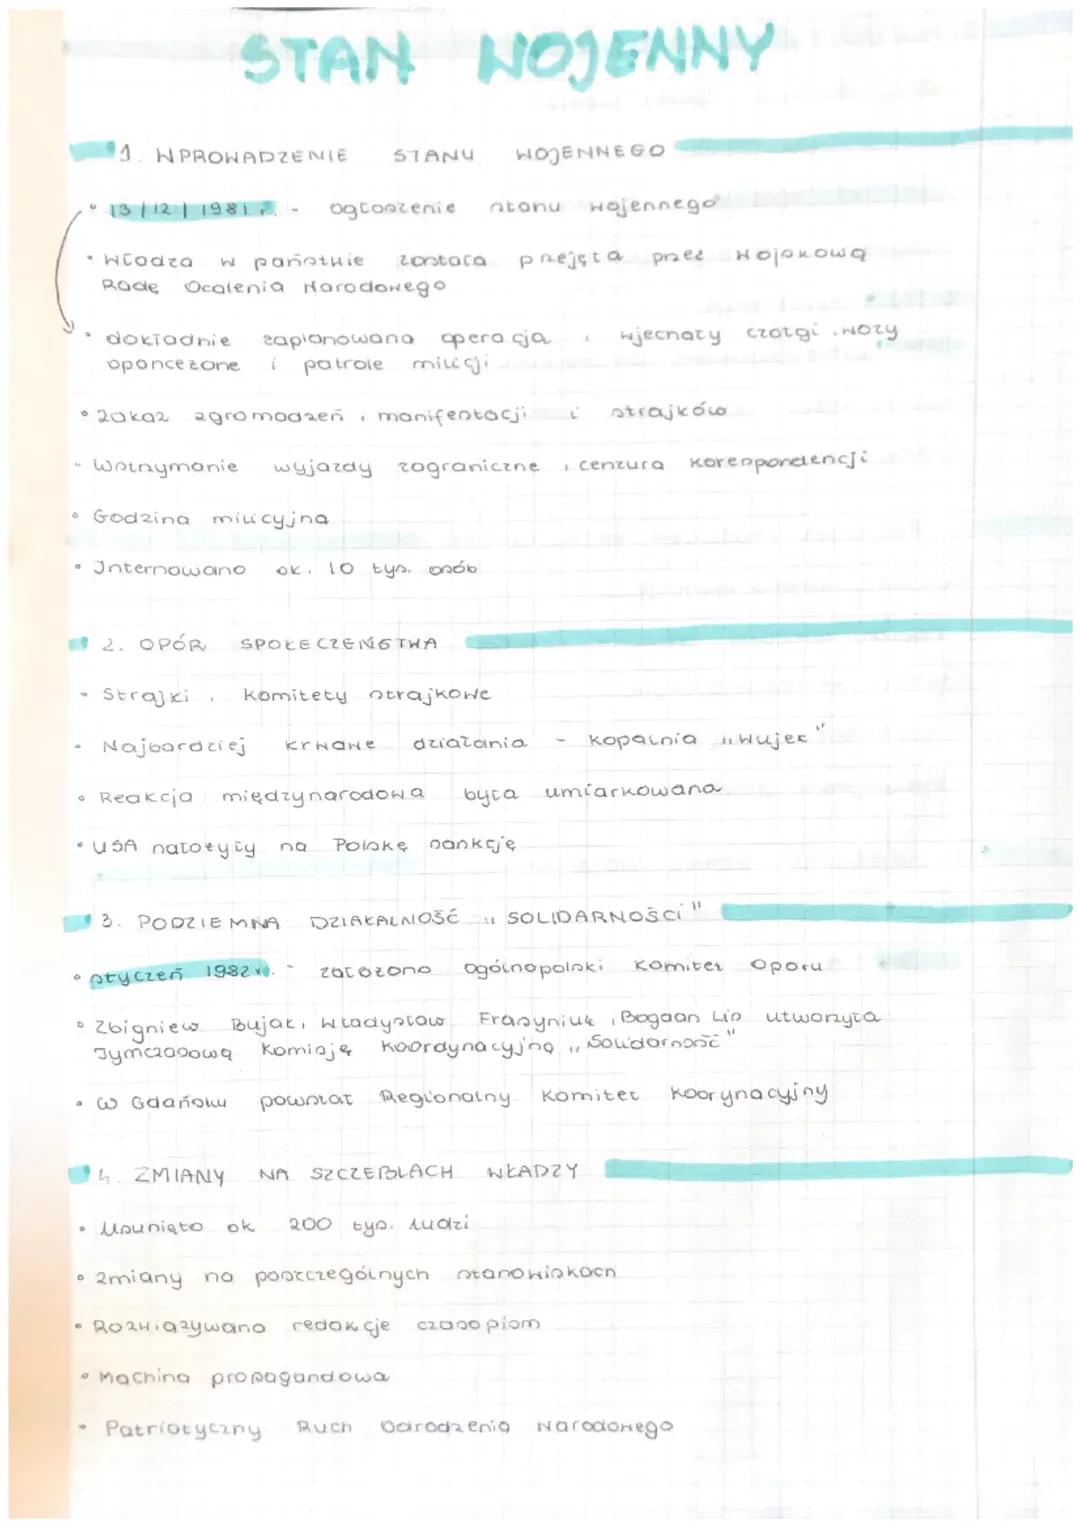 STAN WOJENNY
1. WPROWADZENIE STANU WOJENNEGO
• 13/12/1981 r. - ogłoszenie stanu wojennego
• Władza w państwie została przejęta przez Wojskową
Radę Ocalenia Narodowego
• dokładnie zaplanowana operacja, wjechały czołgi, wozy
opancerzone i patrole milicji
• zakaz zgromadzeń, manifestacji i strajków
• Wstrzymanie wyjazdy zagraniczne, cenzura korespondencji
• Godzina milicyjna
• Internowano ok. 10 tys. osób
2. OPÓR SPOŁECZEŃSTWA
• Strajki, komitety strajkowe
• Najbardziej krwawe działania - kopalnia „Wujek"
• Reakcja międzynarodowa była umiarkowana
• USA nałożyły na Polskę sankcję
3. PODZIEMNA DZIAŁALNOŚĆ „SOLIDARNOŚCi"
• styczeń 1982 r. - założono Ogólnopolski Komitet Oporu
• Zbigniew Bujak, Władysław Frasyniuk, Bogdan Lis utworzyła
Tymczasową Komisję Koordynacyjną „Solidarność"
• W Gdańsku powstał Regionalny Komitet Koorynacyjny
4. ZMIANY NA SZCZEBLACH WŁADZY
• Usunięto ok 200 tys. ludzi
• zmiany na poszczególnych stanowiskach
• Rozwiązywano redakcje czasopism
• Machina propagandowa
• Patriotyczny Ruch Odrodzenia Narodowego